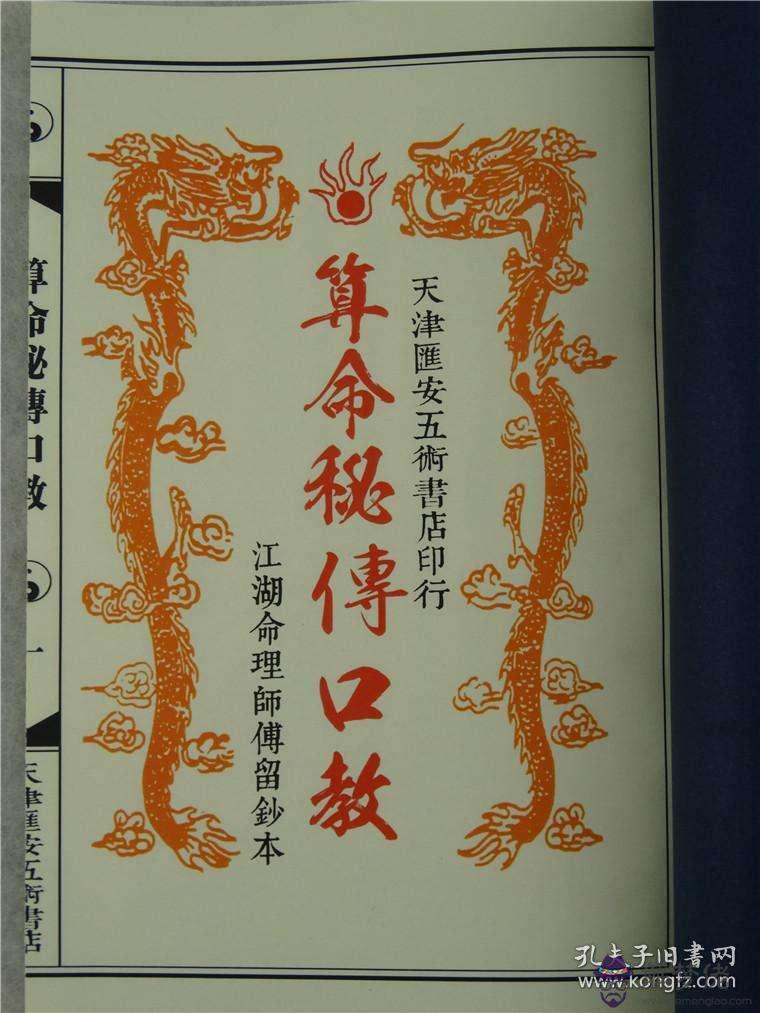 天津匯安五術書店印行
算命秘傳口教
江湖命理師傅留鈔本
算命秘傳口教
一
天津匯安五術書店
孔夫子旧书网
www.kongfz.com